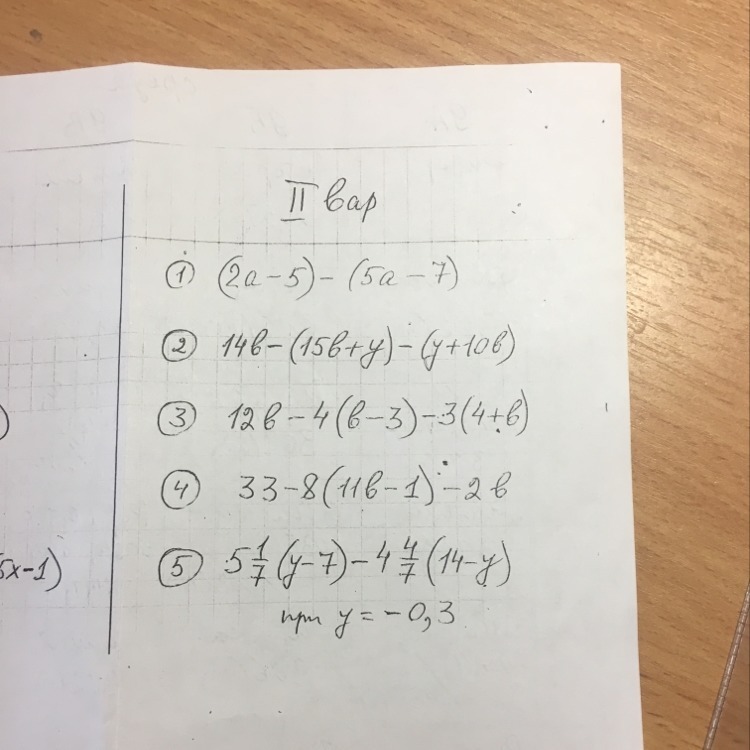 II вар
① (2a-5)-(5a-7)
② 14в-(15в+y)-(y+10в)
③ 12в-4(в-3)-3(4+в)
)
④ 33-8(11в-1)-2в
⑤ 5 1/7 (y-7)-4 4/7 (14-y)
5x-1)
при y=-0,3